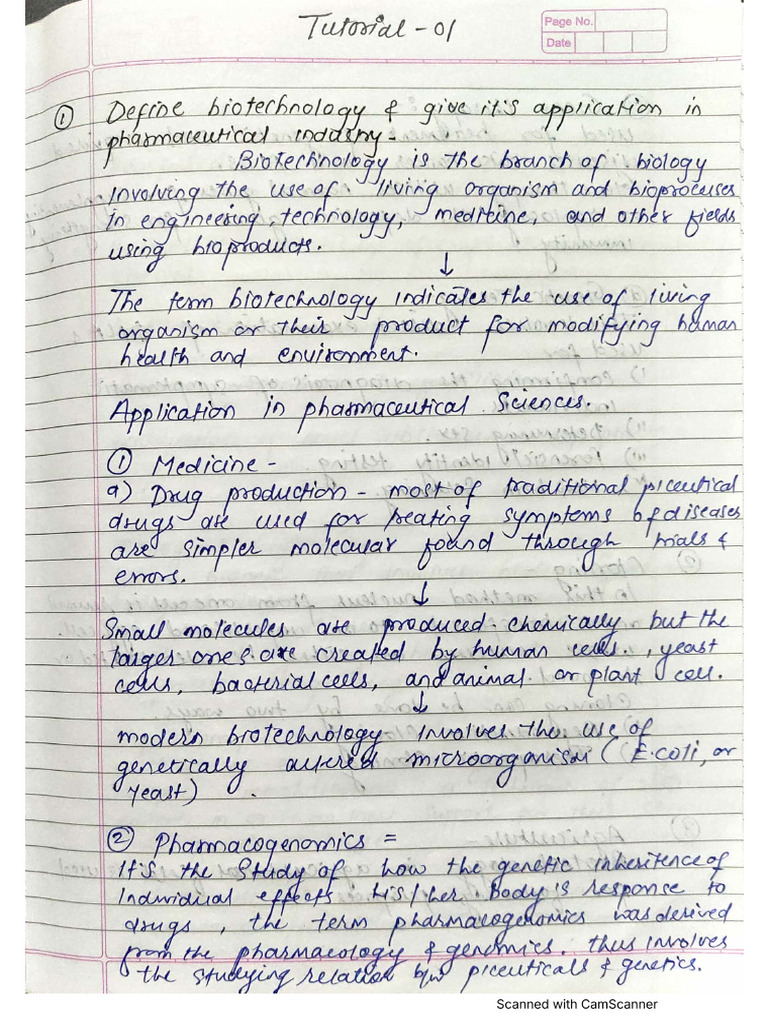 Tutorial - 01
Page No.
Date
① Define biotechnology & give it's application in
pharmaceutical industry -
Biotechnology is the branch of biology
involving the use of living organism and bioprocesses
in engineering, technology, medicine, and other fields
using bioproducts.
↓
The term biotechnology indicates the use of living
organism or their product for modifying human
health and environment.
Application in pharmaceutical Sciences.
① Medicine -
a) Drug production - most of traditional piceutical
drugs are used for treating symptoms of diseases
are simpler molecular found through trials &
errors.
↓
Small molecules are produced chemically but the
larger ones are created by human cells, yeast
cells, bacterial cells, and animal or plant cell.
↓
modern biotechnology involves the use of
genetically altered microorganism (E.coli, or
yeast).
② Pharmacogenomics =
It's the study of how the genetic inheritence of
individual effects his/her body's response to
drugs, the term pharmacogenomics was derived
from the pharmacology & genomics. thus involves
the studying relation b/w piceuticals & genetics.
Scanned with CamScanner